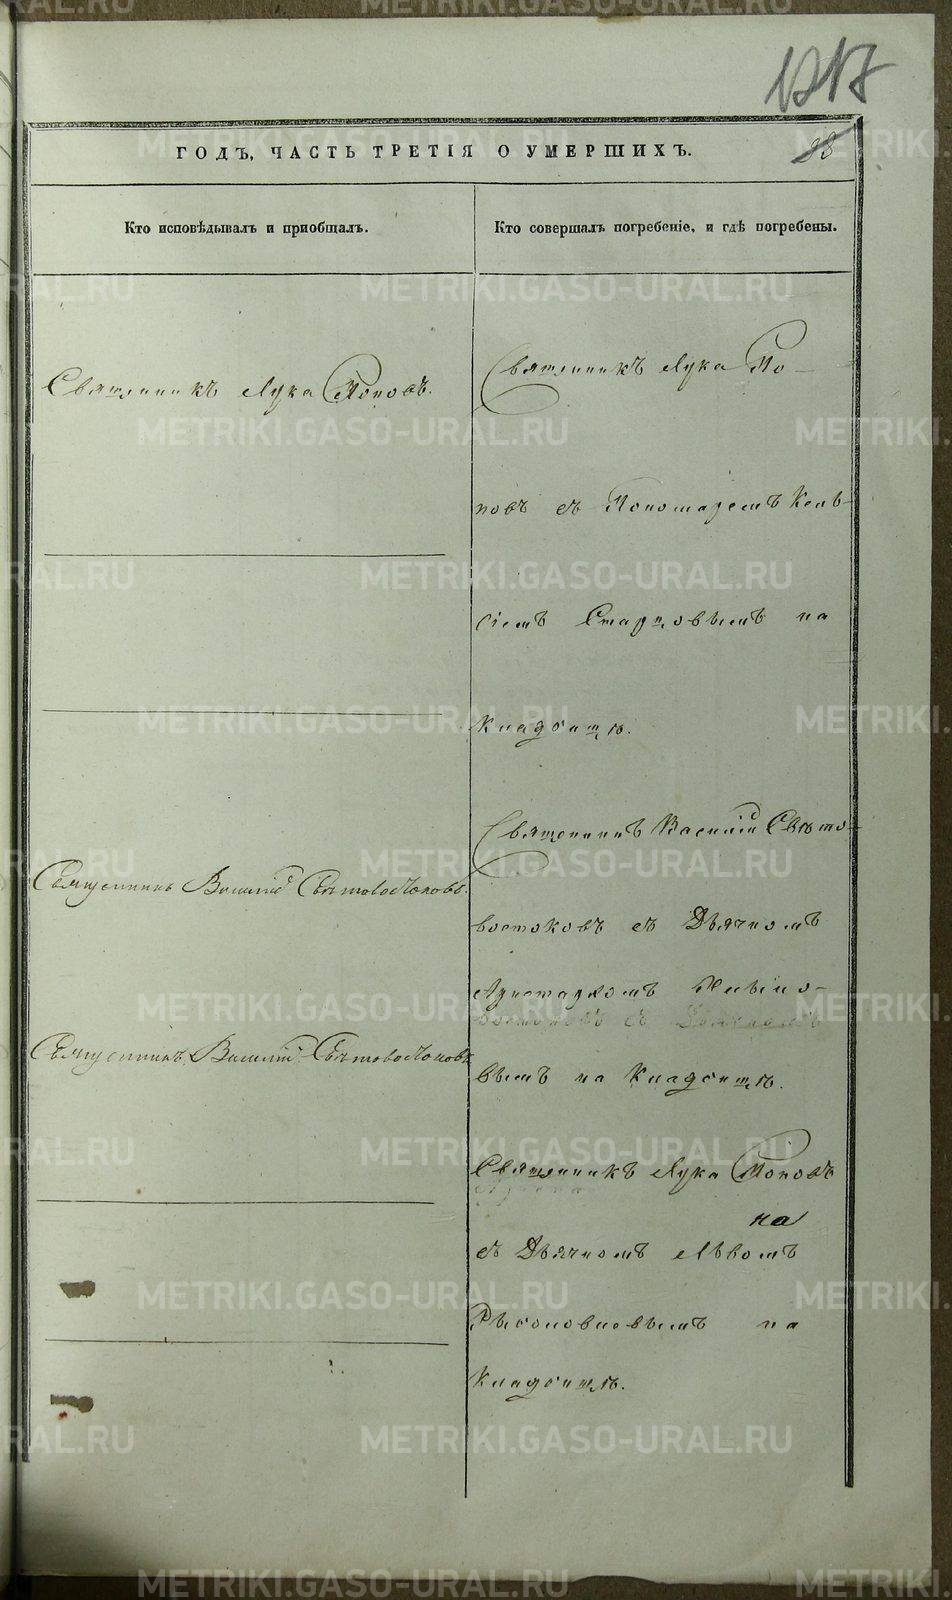 1217
ГОДЪ, ЧАСТЬ ТРЕТІЯ О УМЕРШИХЪ.
Кто исповѣдывалъ и приобщалъ.
Кто совершалъ погребеніе, и гдѣ погребены.
Священникъ Лука Поповъ.
Священникъ Василій Свѣтовостоковъ.
Священникъ Василій Свѣтовостоковъ
Священникъ Лука По-
повъ съ Пономаремъ Кель-
сіемъ Старцовымъ на
Кладбищѣ.
Священникъ Василій Свѣто-
востоковъ съ Дьячкомъ
Аристархомъ
вымъ на Кладбищѣ.
Священникъ Лука Поповъ
на
съ Дьячкомъ Львомъ
на
Кладбищѣ.
METRIKI.GASO-URAL.RU